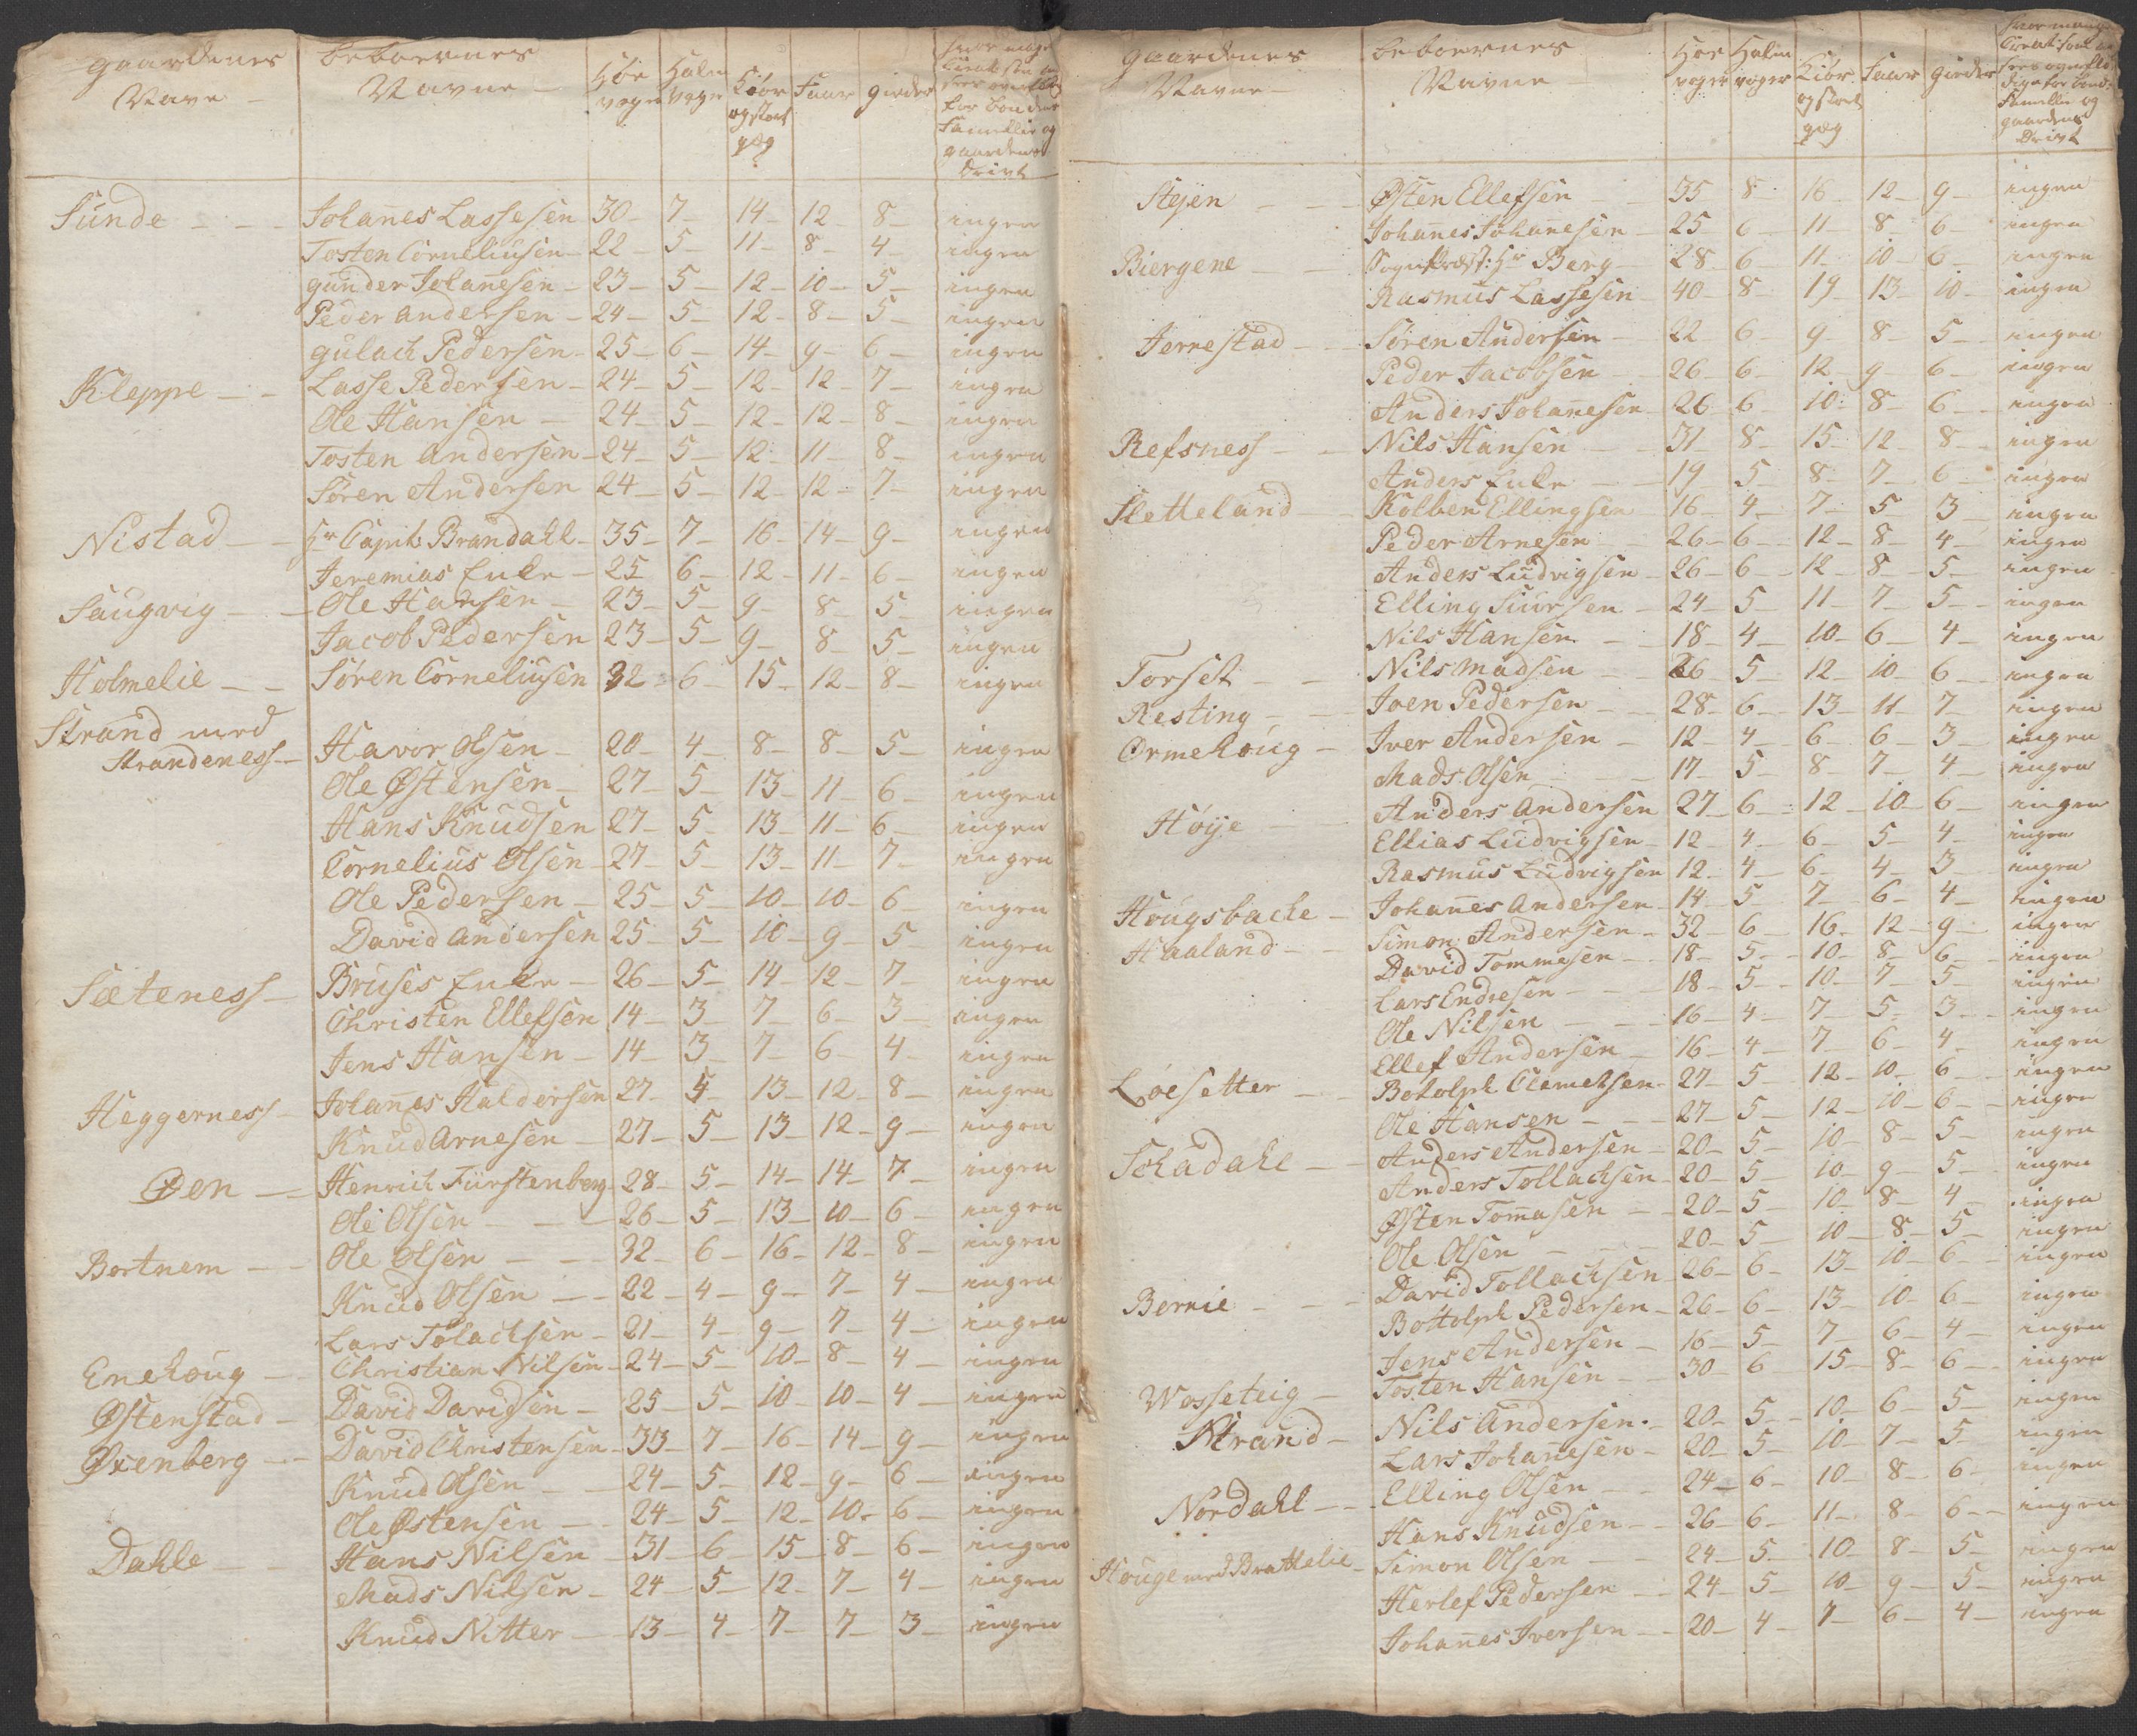 gaardenes Navn - beboernes Navne - Høe vogr Halm vogr Kiør og stort qvæg Faar gieder hvor mage Creat: som an sees overflø for bonden Familie og gaardens Drivt
Sunde - - - Johanes Lassesen 30 - 7 - 14 - 12 8 - ingen
Tosten Corneliusen - 22 - 5 11 - 8 - 4 - ingen
gunder Johanesen - 23 - 5 - 12 - 10 - 5 - ingen
Peder andersen - 24 - 5 - 12 - 8 - 5 - ingen
gulach Pedersen - 25 - 6 - 14 - 9 - 6 - ingen
Kleppe - - Lasse Pedersen - 24 - 5 - 12 - 12 - 7 - ingen
Ole Hansen - 24 - 5 - 12 - 12 - 8 - ingen
Tosten andersen - 24 - 5 - 12 - 11 - 8 - ingen
Søren Andersen 24 - 5 - 12 - 12 - 7 - ingen
Nistad - - Hr Capit: Brandahl - 35 - 7 - 16 - 14 - 9 - ingen
Jeremias Enke - 25 6 - 12 - 11 - 6 - ingen
Saugvig - - Ole Hansen - 23 - 5 - 9 - 8 - 5 - ingen
Jacob Pedersen 23 - 5 - 9 - 8 - 5 - ingen
Holmelie - - Søren Corneliusen 32 - 6 - 15 - 12 - 8 - ingen
Strand med
Strandeness - Havor Olsen - 20 - 4 - 8 - 8 - 5 - ingen
Ole Østensen - 27 - 5 - 13 - 11 - 6 - ingen
Hans Knudsen 27 - 5 - 13 - 11 - 6 - ingen
Cornelius Olsen - 27 - 5 - 13 - 11 - 7 - ingen
Ole Pedersen - 25 - 5 - 10 - 10 - 6 ingen
David andersen 25 - 5 - 10 - 9 - 5 - ingen
Sæteness - Bruses Enke - 26 - 5 - 14 - 12 - 7 - ingen
Christen Ellefsen 14 - 3 - 7 - 6 - 3 - ingen
Jens Hansen - 14 - 3 - 7 - 6 - 4 - ingen
Heggerness - Johanes Haldorsen 27 - 5 - 13 - 12 - 8 - ingen
Knud Arnesen - 27 - 5 - 13 - 12 - 9 - ingen
Øen - - Henrich Fürstenberg - 28 - 5 - 14 - 14 - 7 - ingen
Ole Olsen - - - 26 - 5 - 13 - 10 - 6 - ingen
Bortnem - - Ole Olsen - - - 32 - 6 - 16 - 12 - 8 - ingen
Knud Olsen - - 22 - 4 - 9 - 7 - 4 - ingen
Lars Tolachsen - 21 - 4 - 9 - 7 - 4 - ingen
Enehoug - - Christian Nilsen - 24 - 5 - 10 - 8 - 4 - ingen
Østenstad - David Davidsen - 25 - 5 - 10 - 10 - 4 - ingen
Øxenberg - - David Christensen - 33 - 7 - 16 - 14 - 9 - ingen
Knud Olsen - - 24 - 5 - 12 - 9 - 6 - ingen
Ole Østensen - - 24 - 5 - 12 - 10 - 6 - ingen
Dahle - - Hans Nilsen - 31 - 6 - 15 - 8 - 6 - ingen
Mads Nilsen - 24 - 5 - 12 - 7 - 4 - ingen
Knud Nitter - 13 - 4 - 7 - 7 - 3 - ingen
gaardenes Navne - beboernes Navne - Høe vogr Halm vogr Kiør og stort qvæg Faar gieder hvor mange Creat: som an sees overflø digе for bond: Familie og gaardens Drivt
Steen - - - Østen Ellefsen - - 35 8 - 16 - 12 - 9 - ingen
Johanes Johanesen - 25 6 - 11 - 8 - 6 - ingen
Biergene - - Sognepræst: Hr Berg - 28 - 6 - 11 - 10 - 6 - ingen
Rasmus Lassesen - 40 - 8 - 19 - 13 - 10 - ingen
Jernestad - - Søren Andersen - 22 6 - 9 - 8 - 5 - ingen
Peder Jacobsen - - 26 - 6 - 12 - 9 - 6 - ingen
Anders Johanesen - 26 6 - 10 - 8 - 6 - ingen
Refsness - - Nils Hansen - - 31 - 8 - 15 - 12 - 8 - ingen
Anders Enke - - 19 5 - 8 - 7 - 6 - ingen
Sletteland - - Kolben Ellingsen 16 - 4 - 7 - 5 3 - ingen
Peder Arnesen - - 26 - 6 - 12 - 8 - 4 - ingen
Anders Ludvigsen - 26 - 6 - 12 - 8 - 5 - ingen
Elling Siursen - 24 - 5 - 11 - 7 - 5 - ingen
Nils Hansen - - 18 - 4 - 10 - 6 - 4 - ingen
Torset - - Nils Madsen - - 26 - 5 - 12 - 10 - 6 - ingen
Resting - - Iven Pedersen - - 28 - 6 - 13 - 11 - 7 - ingen
Ormehoug - Iver Andersen - 12 - 4 - 6 6 - 3 - ingen
Mads Olsen - - - 17 - 5 - 8 - 7 - 4 - ingen
Høije - Anders andersen 27 - 6 - 12 - 10 - 6 - ingen
Ellias Ludvigsen - 12 - 4 - 6 - 5 - 4 - ingen
Rasmus Ludvigsen 12 - 4 - 6 - 4 - 3 - ingen
Hougsbache - Johanes andersen - 14 - 5 7 - 6 - 4 - ingen
Haaland - - Simon Andersen - 32 - 6 - 16 - 12 - 9 - ingen
David Tommesen - - 18 - 5 - 10 - 8 - 6 - ingen
Lars Endresen - - - 18 - 5 - 10 - 7 - 5 - ingen
Ole Nilsen - - - 16 - 4 - 7 - 5 - 3 - ingen
Ellef Andersen - 16 - 4 - 7 - 6 - 4 - ingen
Løesetter - - Botolph Clemetsen - 27 - 5 - 12 - 10 - 6 - ingen
Ole Hansen - - - 27 - 5 - 12 - 10 - 6 - ingen
Schadahl - - Anders Andersen - 20 - 5 - 10 - 8 - 5 - ingen
Anders Tollachsen - 20 - 5 - 10 - 9 - 5 - ingen
Østen Tomasen - - 20 - 5 - 10 - 8 - 4 - ingen
Ole Olsen - - - 20 - 5 - 10 - 8 - 5 - ingen
Bernie - - - David Tollachsen - 26 - 6 - 13 - 10 - 6 - ingen
Bottolph Pedersen - 26 - 6 - 13 - 10 - 6 - ingen
Jens Andersen - 16 - 5 - 7 - 6 - 4 - ingen
Wosseteig - Tosten Hansen - - 30 - 6 15 - 8 - 6 - ingen
Strand - Nils Andersen - 20 - 5 - 10 - 6 - 5 - ingen
Lars Johanesen - 20 - 5 - 10 - 7 - 5 ingen
Nordahl - - Elling Olsen - - 24 - 6 - 10 - 8 - 6 - ingen
Hans Knudsen - - 26 - 6 - 11 - 8 - 6 - ingen
Houge med Brattelie - Simon Olsen - - 24 - 5 - 10 - 8 - 5 - ingen
Herlef Pedersen - - 24 - 5 - 10 - 9 - 5 - ingen
Johanes Iversen - - 20 - 4 - 7 - 6 - 4 - ingen